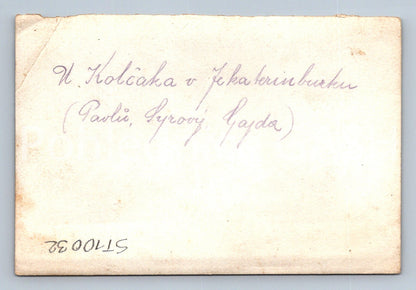 U Kolčaka v Jekaterinburku
(Pavlů, Syrový, Gajda)
ST10032